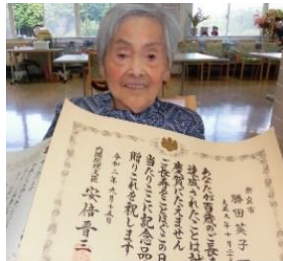 奈良市
勝田英子
あなたが百歳のご長寿を
達成されたことは誠に
慶賀にたえません
ご長寿をことほぐこの日に
当たりここに記念品を
贈りこれを祝します
令和二年九月十五日
内閣総理大臣 安倍晋三